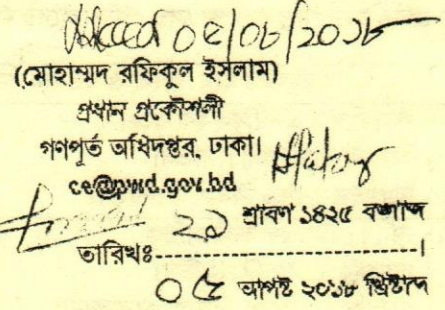 ০৫/০৮/২০১৮
(মোহাম্মদ রফিকুল ইসলাম)
প্রধান প্রকৌশলী
গণপূর্ত অধিদপ্তর, ঢাকা।
ce@pwd.gov.bd
২১ শ্রাবণ ১৪২৫ বঙ্গাব্দ
তারিখঃ---------------------------।
০৫ আগষ্ট ২০১৮ খ্রিষ্টাব্দ